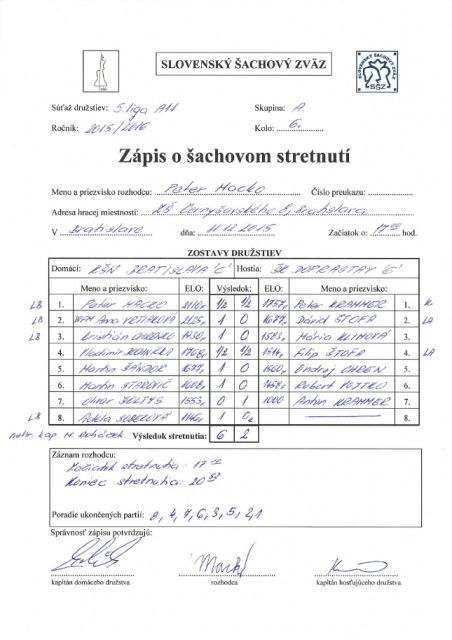 SLOVENSKÝ ŠACHOVÝ ZVÄZ
SLOVENSKÝ ŠACHOVÝ ZVÄZ
SŠZ
Súťaž družstiev: 5. liga A11
Skupina: A
Ročník: 2015/2016
Kolo: 6.
Zápis o šachovom stretnutí
Meno a priezvisko rozhodcu: Peter Macko
Číslo preukazu:
Adresa hracej miestnosti: Černyševského 8, Bratislava
V Bratislave dňa: 11.12.2015 Začiatok o: 17 hod.
ZOSTAVY DRUŽSTIEV
Domáci: KŠN BRATISLAVA "C" Hostia: ŠK DOPRASTAV "E"
Meno a priezvisko: ELO: Výsledok: ELO: Meno a priezvisko:
LB 1. Peter MACKO ½ ½ 1757 Peter KRAMMER 1. K
LB 2. Anna 1 0 1677 Dávid ŠTOFA 2. LA
LB 3. Kristián 1 0 Mária KLIMOVÁ 3.
4. Vladimír ½ ½ 1514 Filip ŠTOFA 4. LA
5. Martin ŠÁNDOR 1677 1 0 Ondrej 5.
6. Martin STAROVIČ 1 0 Robert VOJTKO 6.
7. Oliver 1553 0 1 1000 Anton KRAMMER 7.
LB 8. Adela 1146 1 8.
kap. M. Roháček Výsledok stretnutia: 6 2
Záznam rozhodcu:
Začiatok stretnutia: 17
Koniec stretnutia: 20
Poradie ukončených partií: 8, 4, 7, 6, 3, 5, 2, 1
Správnosť zápisu potvrdzujú:
kapitán domáceho družstva rozhodca kapitán hosťujúceho družstva